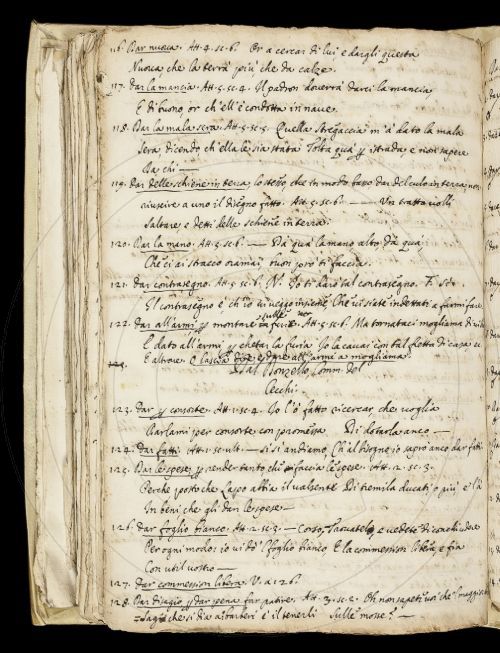 116. Dar nuova. Att. 4. sc. 6. Or a cercar di lui, e dargli questa
Nuova che la terrà più che da calze.
117. Dar la mancia. Att. 5. sc. 4. Il padron doverrà darci la mancia
E di buono, or ch'ell'è condotta in nave.
118. Dar la mala sera. Att. 5. sc. 5. Quella Stregaccia m'à dato la mala
Sera dicendo ch'ella le sia stata Tolta quà p istrada e vuol sapere
Da chi —
119. Dar delle schiene in terra, lo stesso, che in modo basso dar del culo in terra, non
riuscire a uno il disegno fatto. Att. 5. sc. 6. — Un tratto volli
Saltare, e detti delle schiene in terra.
120. Dar la mano. Att. 5. sc. 6. — Dà quà la mano altro dà quà:
Che ci ai stracco oramai, vuoi però ti faccia.
121. Dar contrasegno. Att. 5. sc. 6. N. Io ti darò tal contrasegno. F. Sì.
El contrasegno è ch'io vi veggo insieme Che vi siate indettati a farmi fare
122. Dar all'armi p montare sulle furie. Att. 5. sc. 6. Ma tornataci mogliama di villa
E dato all'armi p chetar la furia Io la cavai con tal fretta di casa
E altrove. O lascia dire e dare all'armi a mogliama.
Dal Donzello Comm. del
Cecchi.
123. Dar p consorte. Att. 1. sc. 4. Io l'ò fatto ricercar, che voglia
Darlami per consorte con promessa Di dotarla anco —
124. Dar fatti. Att. 1. sc. ult. — Sì sì andiamo, Ch'al bisogno io saprò anco dar fatti
125. Dar le spese p rende tanto chi faccia le spese. Att. 2. sc. 3.
Perche posto che Lapo abbia il valsente Di tremila ducati o più e l'à
In beni che gli dan le spese —
126. Dar foglio bianco. Att. 2. sc. 3. — Corso, e vedete di conchiudere
Per ogni modo: io vi dò 'l foglio bianco E la commession libera, e fia
Con util vostro —
127. Dar commession libera. V. a 126.
128. Dar disagio p dar pena far patire. Att. 3. sc. 2. Oh non sapete voi che 'l maggior
disagio che si dia a' barberi è il tenerli Sulle mosse? —